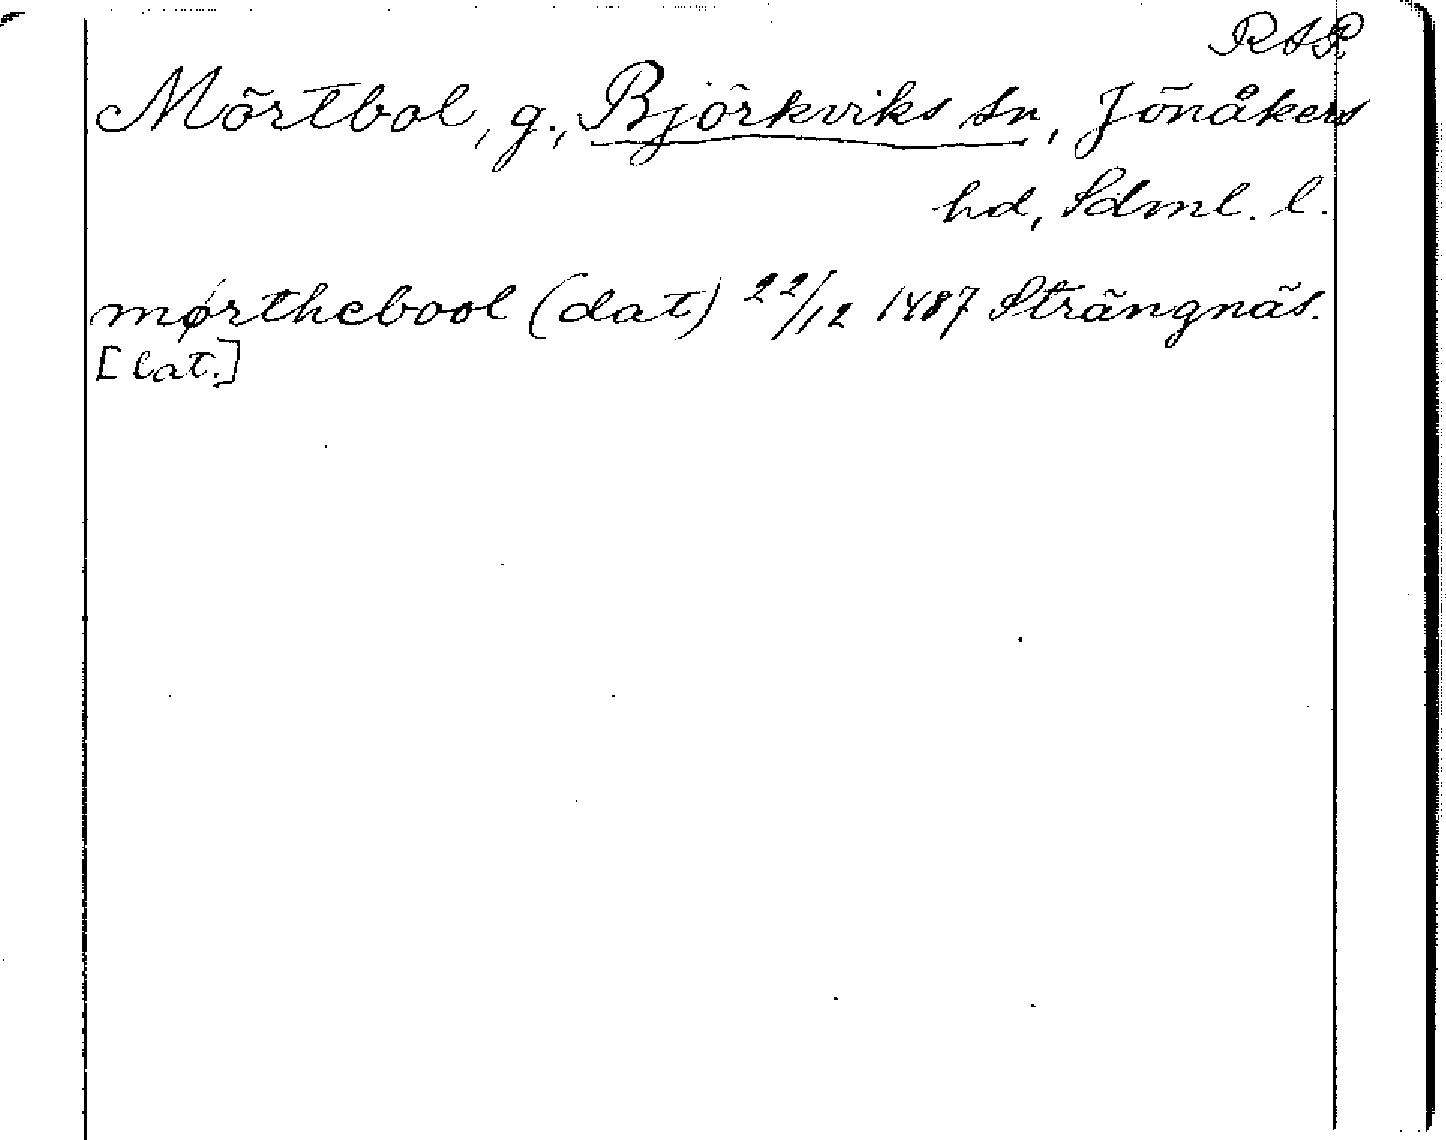 RAP.
Mörtbol, g., Björkviks sn, Jönåkers
hd, Sdml. l.
mørthebool (dat) 22/12 1487 Strängnäs.
[lat.]